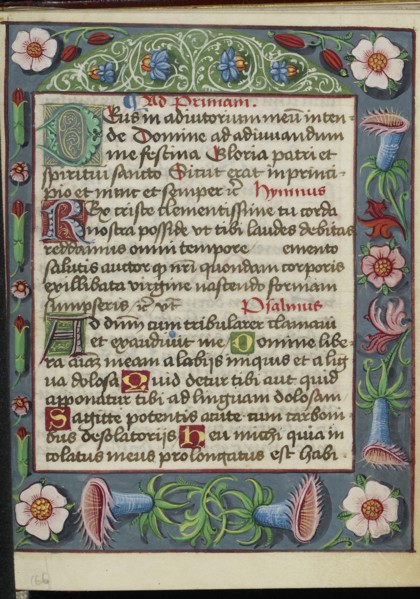 Ad Primam.
Deus in adiutorium meū inten=
de Domine ad adiuuandum
me festina Gloria patri et
spiritui sancto Sicut erat in princi=
pio et nunc et semper ꝛc̄ Hymnus
Rex criste clementissime tu corda
nostra posside vt tibi laudes debitas
reddamus omni tempore emento
salutis auctor ꝙ nr̄i quondam corporis
ex illibata virgine nascendo formam
sumpseris ꝛc̄ Psalmus
Ad dūm cum tribularer clamaui
et exaudiuit me Domine libe=
ra aīaz meam a labijs iniquis et a lig
ua dolosa Quid detur tibi aut quid
apponatur tibi ad linguam dolosam
Sagitte potentis acute cum carboni=
bus desolatorijs Heu michi quia in
colatus meus prolongatus est habi
166